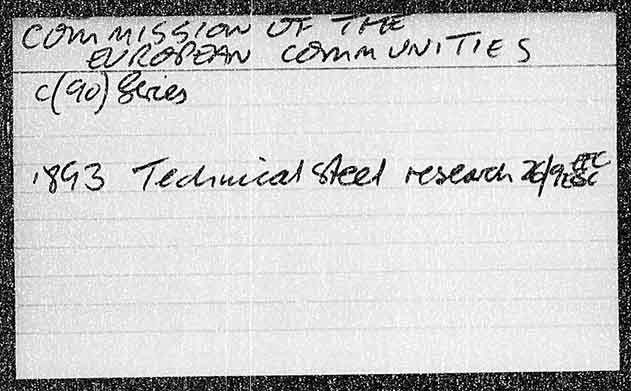 COMMISSION OF THE
EUROPEAN COMMUNITIES
C(90) Series
1893 Technical Steel research 26/9 EEC